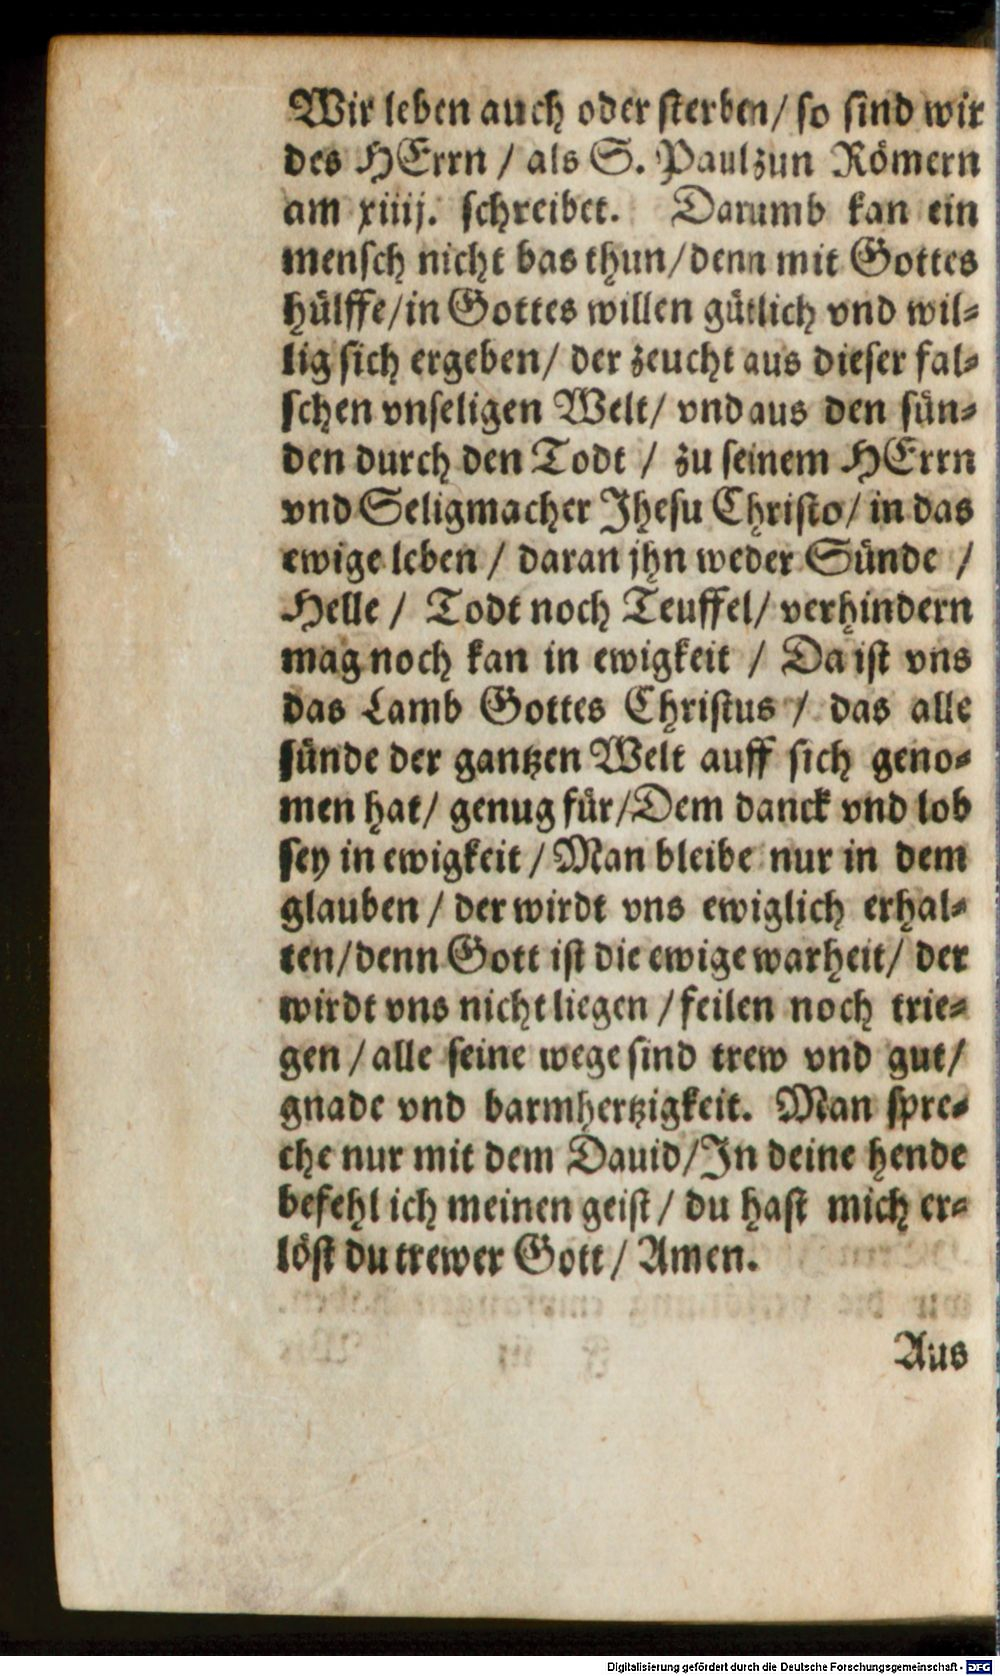 Wir leben auch oder sterben/ so sind wir
des HErrn / als S. Paul zun Römern
am xiiij. schreibet. Darumb kan ein
mensch nicht bas thun/denn mit Gottes
hülffe/in Gottes willen gütlich vnd wil⸗
lig sich ergeben/ der zeucht aus dieser fal⸗
schen vnseligen Welt/ vnd aus den sün⸗
den durch den Todt / zu seinem HErrn
vnd Seligmacher Jhesu Christo/ in das
ewige leben / daran jhn weder Sünde /
Helle / Todt noch Teuffel/ verhindern
mag noch kan in ewigkeit / Da ist vns
das Lamb Gottes Christus / das alle
sünde der gantzen Welt auff sich geno⸗
men hat/ genug für/Dem danck vnd lob
sey in ewigkeit / Man bleibe nur in dem
glauben / der wirdt vns ewiglich erhal⸗
ten/denn Gott ist die ewige warheit/ der
wirdt vns nicht liegen / feilen noch trie⸗
gen / alle seine wege sind trew vnd gut/
gnade vnd barmhertzigkeit. Man spre⸗
che nur mit dem Dauid/Jn deine hende
befehl ich meinen geist / du hast mich er⸗
löst du trewer Gott / Amen.
Aus
Digitalisierung gefördert durch die Deutsche Forschungsgemeinschaft - DFG